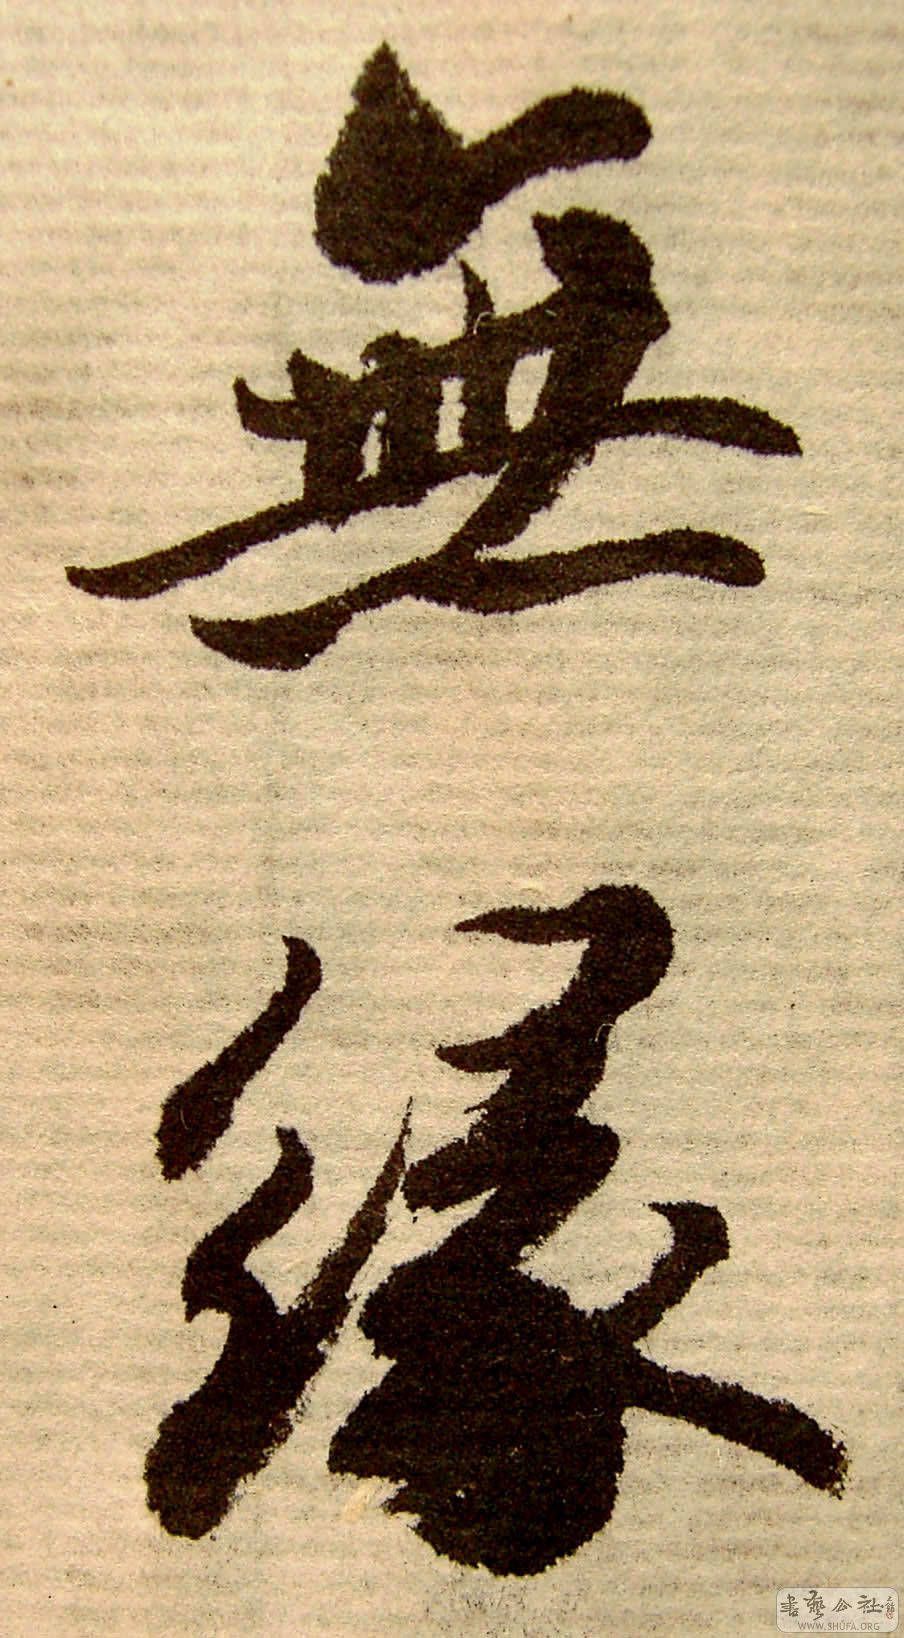 無緣
書藝公社
WWW.SHUFA.ORG